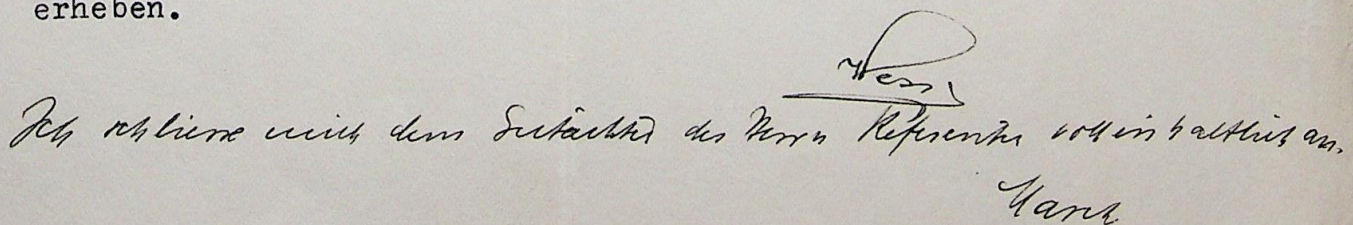 erheben.
Hess
Ich schliesse mich dem Gutachten des Herrn Referenten vollinhaltlich an.
March